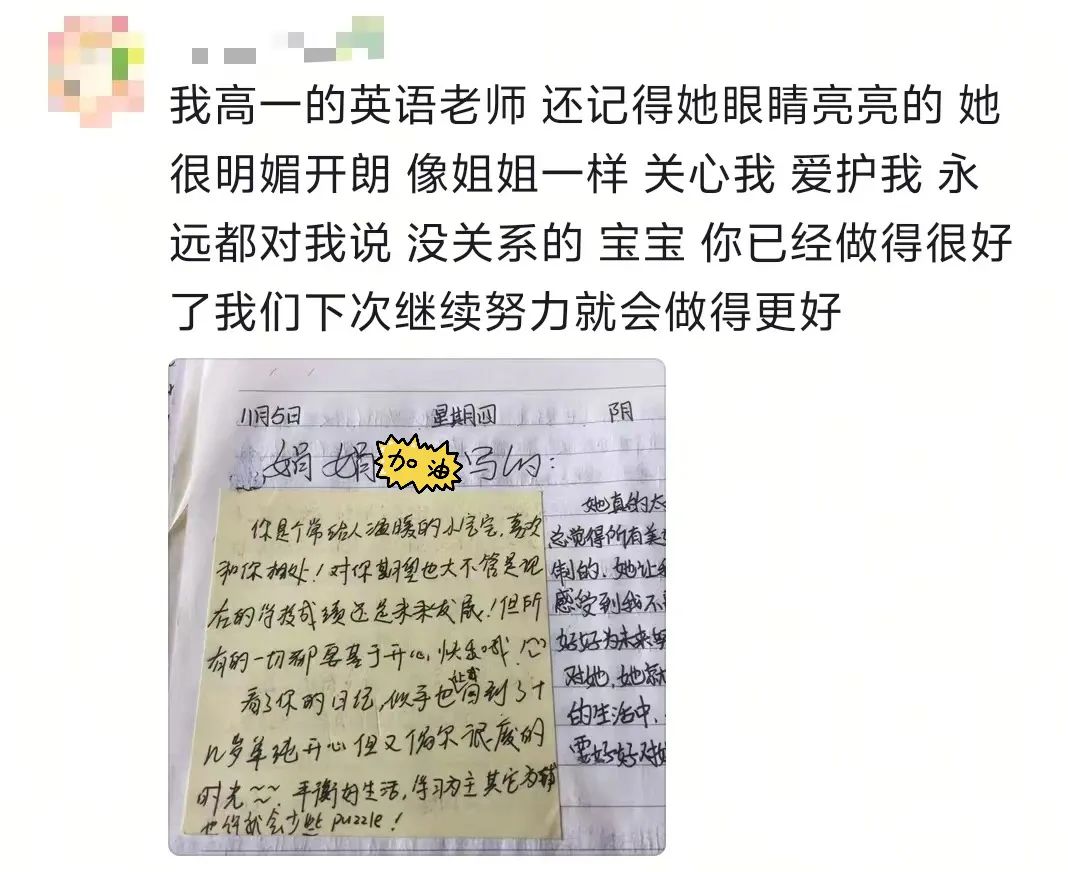 我高一的英语老师 还记得她眼睛亮亮的 她
很明媚开朗 像姐姐一样 关心我 爱护我 永
远都对我说 没关系的 宝宝 你已经做得很好
了我们下次继续努力就会做得更好
11月5日 星期四 阴
娟娟 加油 写的:
你是个常给人温暖的小宝宝,喜欢
和你相处!对你期望也大不管是现
在的学校成绩还是未来发展!但所
有的一切都要基于开心,快乐哦!
看了你的日记,似乎也让我回到了十
几岁单纯开心但又偶尔很废的
时光~~ 平衡好生活,学习为主其它为辅
也许就会少些puzzle!
她真的太
总觉得所有美
制的,她让我
感受到我不
好好为未来努
对她,她就
的生活中,
要好好对她